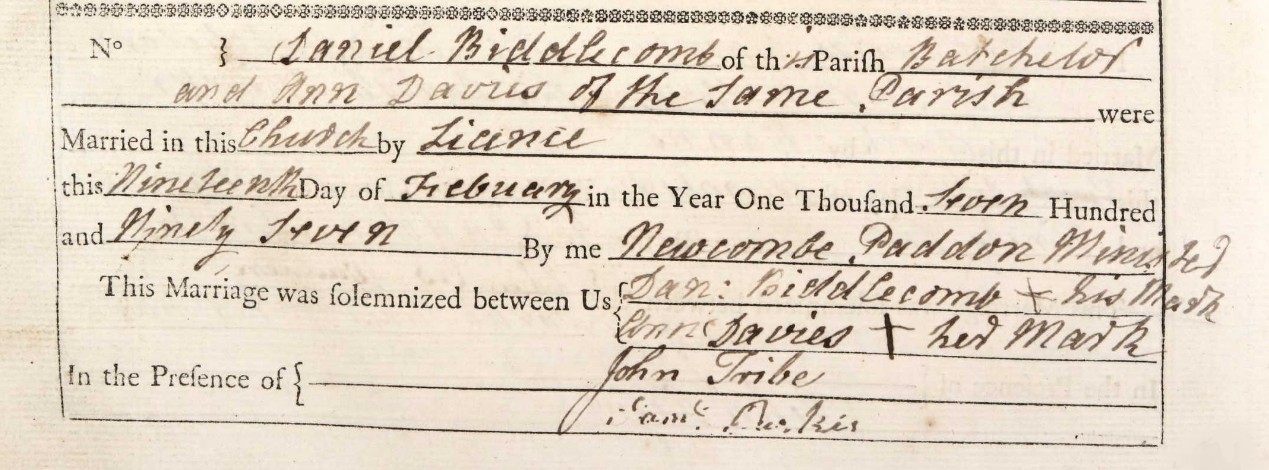 No } Daniel Biddlecomb of this Pariſh Batchelor
and Ann Davies of the Same Parish were
Married in this Church by Licence
this Nineteenth Day of February in the Year One Thouſand Seven Hundred
and Ninety Seven By me Newcombe Paddon Minister
This Marriage was ſolemnized between Us { Dan: Biddlecomb + his Mark
Ann Davies + her Mark
In the Preſence of { John Tribe
Saml.